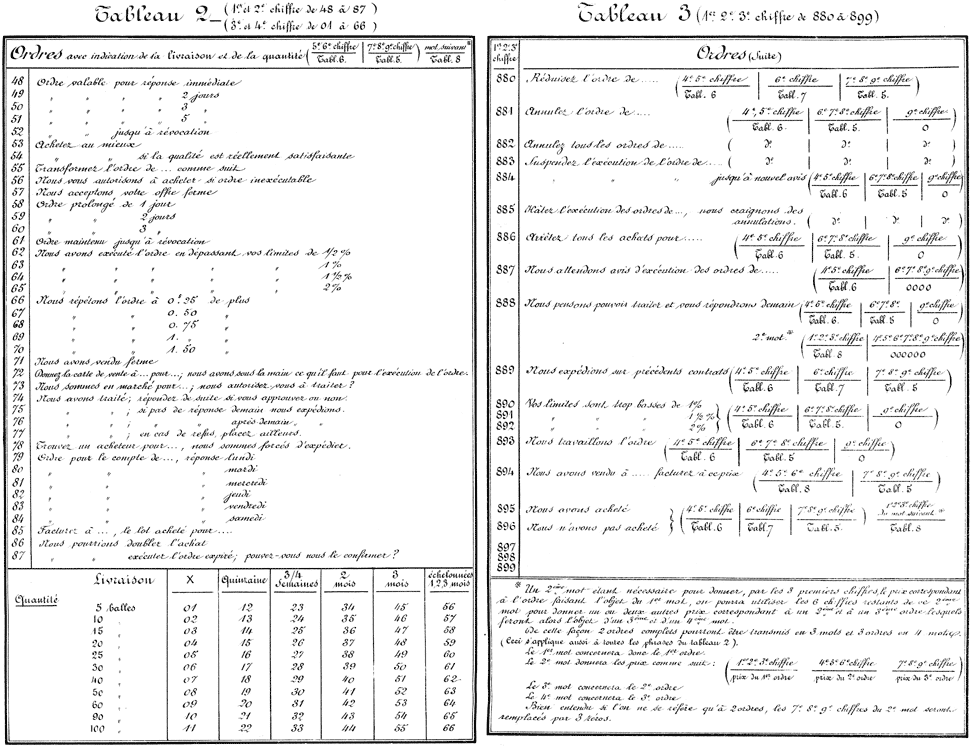 Tableau 2_ (1er et 2e chiffre de 48 à 87)
(3e et 4e chiffre de 01 à 66)
Ordres avec indication de la livraison et de la quantité (5e 6e chiffre / Tabl. 6. | 7e 8e 9e chiffre / Tabl. 5.) mot suivant* / Tabl. 8
48 Ordre valable pour réponse immédiate
49 " " " " 2 jours
50 " " " " 3 "
51 " " " " 5 "
52 " " jusqu'à révocation
53 Achetez au mieux
54 " " si la qualité est réellement satisfaisante
55 Transformez l'ordre de ... comme suit
56 Nous vous autorisons à acheter si ordre inexécutable
57 Nous acceptons votre offre ferme
58 Ordre prolongé de 1 jour
59 " " 2 jours
60 " " 3 "
61 Ordre maintenu jusqu'à révocation
62 Nous avons exécuté l'ordre en dépassant vos limites de 1/2 %
63 " " " " " " 1 %
64 " " " " " " 1 1/2 %
65 " " " " " " 2 %
66 Nous répétons l'ordre à 0f. 25 de plus
67 " " " 0. 50 "
68 " " " 0. 75 "
69 " " " 1. " "
70 " " " 1. 50 "
71 Nous avons vendu ferme
72 Donnez la carte de vente à ... pour ...; nous avons sous la main ce qu'il faut pour l'exécution de l'ordre.
73 Nous sommes en marché pour ...; nous autorisez vous à traiter ?
74 Nous avons traité; répondez de suite si vous approuvez ou non.
75 " " " ; si pas de réponse demain nous expédions.
76 " " " " après demain " "
77 " " " ; en cas de refus, placez ailleurs.
78 Trouvez un acheteur pour ..., nous sommes forcés d'expédier.
79 Ordre pour le compte de ..., réponse lundi
80 " " " " mardi
81 " " " " mercredi
82 " " " " jeudi
83 " " " " vendredi
84 " " " " samedi
85 Facturez à ..., le lot acheté pour ....
86 Nous pourrions doubler l'achat
87 " " exécuter l'ordre expiré; pouvez-vous nous le confirmer ?
Livraison X Quinzaine 3/4 Semaines 2 mois 3 mois échelonnées 1,2,3 mois
Quantité
5 balles 01 12 23 34 45 56
10 " 02 13 24 35 46 57
15 " 03 14 25 36 47 58
20 " 04 15 26 37 48 59
25 " 05 16 27 38 49 60
30 " 06 17 28 39 50 61
40 " 07 18 29 40 51 62
50 " 08 19 30 41 52 63
60 " 09 20 31 42 53 64
90 " 10 21 32 43 54 65
100 " 11 22 33 44 55 66
Tableau 3 (1er 2e 3e chiffre de 880 à 899)
1er 2e 3e chiffre Ordres (Suite)
880 Réduisez l'ordre de ..... (4e 5e chiffre / Tabl. 6 | 6e chiffre / Tabl. 7 | 7e 8e 9e chiffre / Tabl. 5.)
881 Annulez l'ordre de .... (4e, 5e chiffre / Tabl. 6. | 6e 7e 8e chiffre / Tabl. 5. | 9e chiffre / 0)
882 Annulez tous les ordres de ..... (do | do | do)
883 Suspendez l'exécution de l'ordre de ... (do | do | do)
884 " " " jusqu'à nouvel avis (4e 5e chiffre / Tabl. 6 | 6e 7e 8e chiffre / Tabl. 5 | 9e chiffre / 0)
885 Hâtez l'exécution des ordres de ..., nous craignons des annulations. (do | do | do)
886 Arrêtez tous les achats pour ..... (4e 5e chiffre / Tabl. 6 | 6e 7e 8e chiffre / Tabl. 5. | 9e chiffre / 0)
887 Nous attendons avis d'exécution des ordres de ..... (4e 5e chiffre / Tabl. 6 | 6e 7e 8e 9e chiffre / 0000)
888 Nous pensons pouvoir traiter et vous répondrons demain (4e 5e chiffre / Tabl. 6. | 6e 7e 8e / Tabl. 5 | 9e chiffre / 0)
2e mot.* (1er 2e 3e chiffre / Tabl. 8 | 4e 5e 6e 7e 8e 9e chiffre / 000000)
889 Nous expédions sur précédents contrats (4e 5e chiffre / Tabl. 6 | 6e chiffre / Tabl. 7 | 7e 8e 9e chiffre / Tabl. 5)
890 Vos limites sont trop basses de 1 %
891 " " " " 1 1/2 % (4e 5e chiffre / Tabl. 6 | 6e 7e 8e chiffre / Tabl. 5 | 9e chiffre / 0)
892 " " " " 2 %
893 Nous travaillons l'ordre (4e 5e chiffre / Tabl. 6 | 6e 7e 8e chiffre / Tabl. 5 | 9e chiffre / 0)
894 Nous avons vendu à ..... facturez à ce prix (4e 5e 6e chiffre / Tabl. 8 | 7e 8e 9e chiffre / Tabl. 5)
895 Nous avons acheté
896 Nous n'avons pas acheté (4e 5e chiffre / Tabl. 6 | 6e chiffre / Tabl. 7 | 7e 8e 9e chiffre / Tabl. 5. | 1er 2e 3e chiffre du mot suivant* / Tabl. 8)
897
898
899
* Un 2ème mot étant nécessaire pour donner, par les 3 premiers chiffres, le prix correspondant
à l'ordre faisant l'objet du 1er mot, on pourra utiliser les 6 chiffres restants de ce 2ème
mot pour donner un ou deux autres prix correspondant à un 2ème et à un 3ème ordre lesquels
feront alors l'objet d'un 3ème et d'un 4ème mot.
De cette façon 2 ordres complets pourront être transmis en 3 mots et 3 ordres en 4 mots.
(Ceci s'applique aussi à toutes les phrases du tableau 2).
Le 1er mot concernera donc le 1er ordre.
Le 2e mot donnera les prix comme suit : (1er 2e 3e chiffre / prix du 1er ordre | 4e 5e 6e chiffre / prix du 2e ordre | 7e 8e 9e chiffre / prix du 3e ordre)
Le 3e mot concernera le 2e ordre
Le 4e mot concernera le 3e ordre
Bien entendu si l'on ne se réfère qu'à 2 ordres, les 7e 8e 9e chiffres du 2e mot seront
remplacés par 3 zéros.